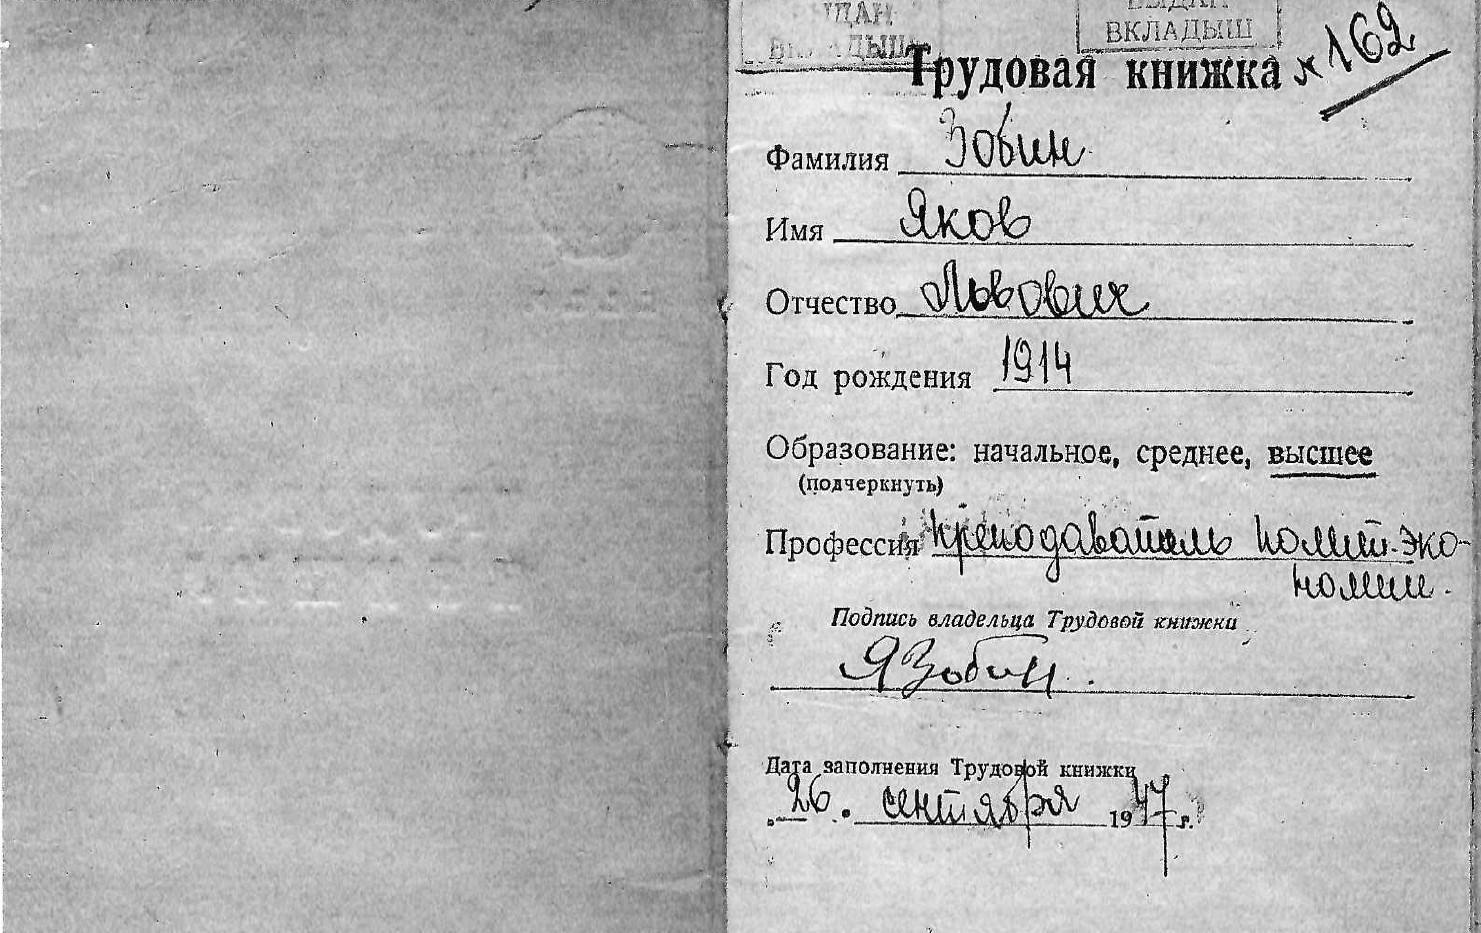 ВЫДАН ВЫДАН
ВКЛАДЫШ ВКЛАДЫШ
Трудовая книжка № 162
Фамилия Зобин
Имя Яков
Отчество Львович
Год рождения 1914
Образование: начальное, среднее, высшее
(подчеркнуть)
Профессия преподаватель полит. эко-
номии.
Подпись владельца Трудовой книжки
ЯЗобин.
Дата заполнения Трудовой книжки
26. сентября 1947 г.